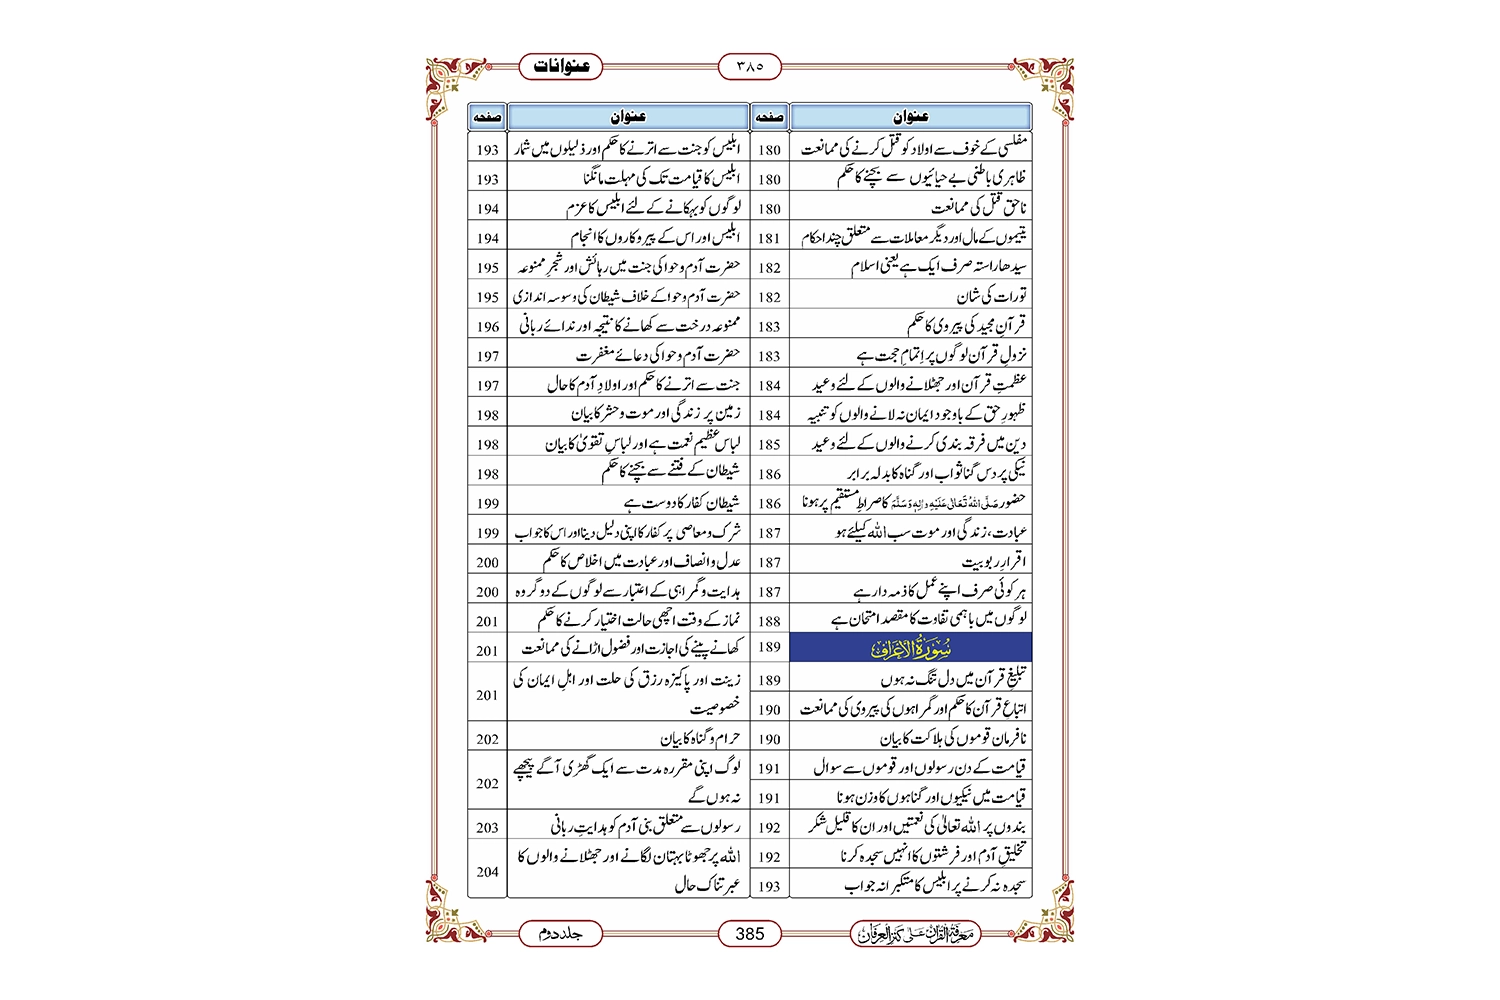 عنوانات
۳۸۵
عنوان صفحہ
مفلسی کے خوف سے اولاد کو قتل کرنے کی ممانعت 180
ظاہری باطنی بے حیائیوں سے بچنے کا حکم 180
ناحق قتل کی ممانعت 180
یتیموں کے مال اور دیگر معاملات سے متعلق چند احکام 181
سیدھا راستہ صرف ایک ہے یعنی اسلام 182
تورات کی شان 182
قرآنِ مجید کی پیروی کا حکم 183
نزولِ قرآن لوگوں پر اِتمامِ حجت ہے 183
عظمتِ قرآن اور جھٹلانے والوں کے لئے وعید 184
ظہورِ حق کے باوجود ایمان نہ لانے والوں کو تنبیہ 184
دین میں فرقہ بندی کرنے والوں کے لئے وعید 185
نیکی پر دس گنا ثواب اور گناہ کا بدلہ برابر 186
حضور صَلَّی اللہُ تَعَالٰی عَلَیْہِ وَاٰلِہٖ وَسَلَّمَ کا صراطِ مستقیم پر ہونا 186
عبادت، زندگی اور موت سب اللہ کیلئے ہو 187
اقرارِ ربوبیت 187
ہر کوئی صرف اپنے عمل کا ذمہ دار ہے 187
لوگوں میں باہمی تفاوت کا مقصد امتحان ہے 188
سُوْرَۃُ الْاَعْرَاف 189
تبلیغِ قرآن میں دل تنگ نہ ہوں 189
اتباعِ قرآن کا حکم اور گمراہوں کی پیروی کی ممانعت 190
نافرمان قوموں کی ہلاکت کا بیان 190
قیامت کے دن رسولوں اور قوموں سے سوال 191
قیامت میں نیکیوں اور گناہوں کا وزن ہونا 191
بندوں پر اللہ تعالیٰ کی نعمتیں اور ان کا قلیل شکر 192
تخلیقِ آدم اور فرشتوں کا انہیں سجدہ کرنا 192
سجدہ نہ کرنے پر ابلیس کا متکبرانہ جواب 193
عنوان صفحہ
ابلیس کو جنت سے اترنے کا حکم اور ذلیلوں میں شمار 193
ابلیس کا قیامت تک کی مہلت مانگنا 193
لوگوں کو بہکانے کے لئے ابلیس کا عزم 194
ابلیس اور اس کے پیروکاروں کا انجام 194
حضرت آدم و حوا کی جنت میں رہائش اور شجرِ ممنوعہ 195
حضرت آدم و حوا کے خلاف شیطان کی وسوسہ اندازی 195
ممنوعہ درخت سے کھانے کا نتیجہ اور ندائے ربانی 196
حضرت آدم و حوا کی دعائے مغفرت 197
جنت سے اترنے کا حکم اور اولادِ آدم کا حال 197
زمین پر زندگی اور موت و حشر کا بیان 198
لباس عظیم نعمت ہے اور لباسِ تقویٰ کا بیان 198
شیطان کے فتنے سے بچنے کا حکم 198
شیطان کفار کا دوست ہے 199
شرک و معاصی پر کفار کا اپنی دلیل دینا اور اس کا جواب 199
عدل و انصاف اور عبادت میں اخلاص کا حکم 200
ہدایت و گمراہی کے اعتبار سے لوگوں کے دو گروہ 200
نماز کے وقت اچھی حالت اختیار کرنے کا حکم 201
کھانے پینے کی اجازت اور فضول اڑانے کی ممانعت 201
زینت اور پاکیزہ رزق کی حلت اور اہلِ ایمان کی
خصوصیت 201
حرام و گناہ کا بیان 202
لوگ اپنی مقررہ مدت سے ایک گھڑی آگے پیچھے
نہ ہوں گے 202
رسولوں سے متعلق بنی آدم کو ہدایتِ ربانی 203
اللہ پر جھوٹا بہتان لگانے اور جھٹلانے والوں کا
عبرتناک حال 204
معرفۃ القرآن علٰی کنز العرفان
385
جلد دوم